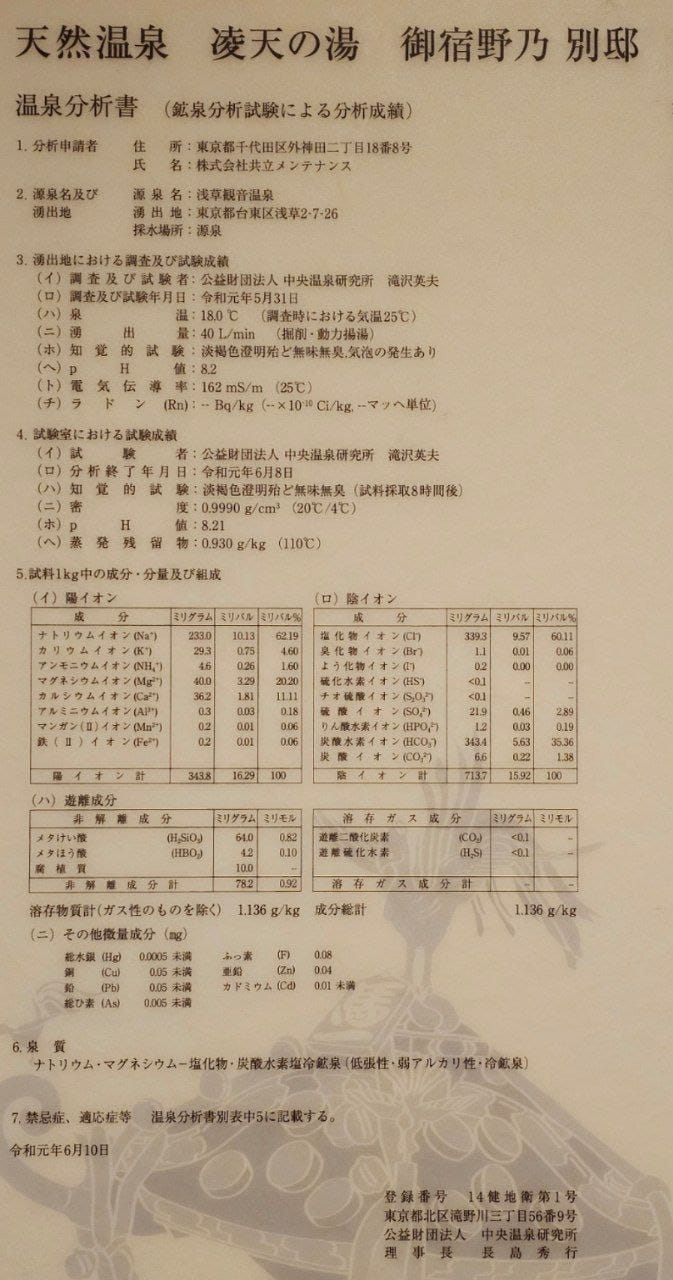 天然温泉　凌天の湯　御宿野乃 別邸
温泉分析書　（鉱泉分析試験による分析成績）
1. 分析申請者　住　所：東京都千代田区外神田二丁目18番8号
氏　名：株式会社共立メンテナンス
2. 源泉名及び　源 泉 名：浅草観音温泉
湧出地　湧 出 地：東京都台東区浅草2-7-26
採水場所：源泉
3. 湧出地における調査及び試験成績
（イ）調 査 及 び 試 験 者：公益財団法人 中央温泉研究所　滝沢英夫
（ロ）調査及び試験年月日：令和元年5月31日
（ハ）泉　温：18.0 ℃　（調査時における気温25℃）
（ニ）湧　出　量：40 L/min　（掘削・動力揚湯）
（ホ）知 覚 的 試 験：淡褐色澄明殆ど無味無臭,気泡の発生あり
（ヘ）p　H　値：8.2
（ト）電 気 伝 導 率：162 mS/m （25℃）
（チ）ラ　ド　ン　(Rn)：-- Bq/kg（--×10⁻¹⁰ Ci/kg, --マッヘ単位）
4. 試験室における試験成績
（イ）試　験　者：公益財団法人 中央温泉研究所　滝沢英夫
（ロ）分 析 終 了 年 月 日：令和元年6月8日
（ハ）知 覚 的 試 験：淡褐色澄明殆ど無味無臭（試料採取8時間後）
（ニ）密　度：0.9990 g/cm³ （20℃/4℃）
（ホ）p　H　値：8.21
（ヘ）蒸 発 残 留 物：0.930 g/kg （110℃）
5.試料1kg中の成分・分量及び組成
（イ）陽イオン
成　分　ミリグラム　ミリバル　ミリバル%
ナトリウムイオン(Na⁺)　233.0　10.13　62.19
カリウムイオン(K⁺)　29.3　0.75　4.60
アンモニウムイオン(NH₄⁺)　4.6　0.26　1.60
マグネシウムイオン(Mg²⁺)　40.0　3.29　20.20
カルシウムイオン(Ca²⁺)　36.2　1.81　11.11
アルミニウムイオン(Al³⁺)　0.3　0.03　0.18
マンガン(Ⅱ)イオン(Mn²⁺)　0.2　0.01　0.06
鉄(Ⅱ)イオン(Fe²⁺)　0.2　0.01　0.06
陽 イ オ ン 計　343.8　16.29　100
（ロ）陰イオン
成　分　ミリグラム　ミリバル　ミリバル%
塩化物イオン(Cl⁻)　339.3　9.57　60.11
臭化物イオン(Br⁻)　1.1　0.01　0.06
よう化物イオン(I⁻)　0.2　0.00　0.00
硫化水素イオン(HS⁻)　<0.1　–　–
チオ硫酸イオン(S₂O₃²⁻)　<0.1　–　–
硫 酸 イ オ ン(SO₄²⁻)　21.9　0.46　2.89
りん酸水素イオン(HPO₄²⁻)　1.2　0.03　0.19
炭酸水素イオン(HCO₃⁻)　343.4　5.63　35.36
炭 酸 イ オ ン(CO₃²⁻)　6.6　0.22　1.38
陰 イ オ ン 計　713.7　15.92　100
（ハ）遊離成分
非 解 離 成 分　ミリグラム　ミリモル
メタけい酸　(H₂SiO₃)　64.0　0.82
メタほう酸　(HBO₂)　4.2　0.10
腐 植 質　10.0　–
非 解 離 成 分 計　78.2　0.92
溶 存 ガ ス 成 分　ミリグラム　ミリモル
遊離二酸化炭素　(CO₂)　<0.1　–
遊離硫化水素　(H₂S)　<0.1　–
溶 存 ガ ス 成 分 計　–　–
溶存物質計（ガス性のものを除く）　1.136 g/kg　成分総計　1.136 g/kg
（ニ）その他微量成分（㎎）
総水銀 (Hg)　0.0005 未満　ふっ素　(F)　0.08
銅　(Cu)　0.05 未満　亜鉛　(Zn)　0.04
鉛　(Pb)　0.05 未満　カドミウム (Cd)　0.01 未満
総ひ素 (As)　0.005 未満
6. 泉　質
ナトリウム・マグネシウム－塩化物・炭酸水素塩冷鉱泉（低張性・弱アルカリ性・冷鉱泉）
7. 禁忌症、適応症等　温泉分析書別表中5に記載する。
令和元年6月10日
登録番号　14健地衛第1号
東京都北区滝野川三丁目56番9号
公益財団法人　中央温泉研究所
理　事　長　長　島　秀　行